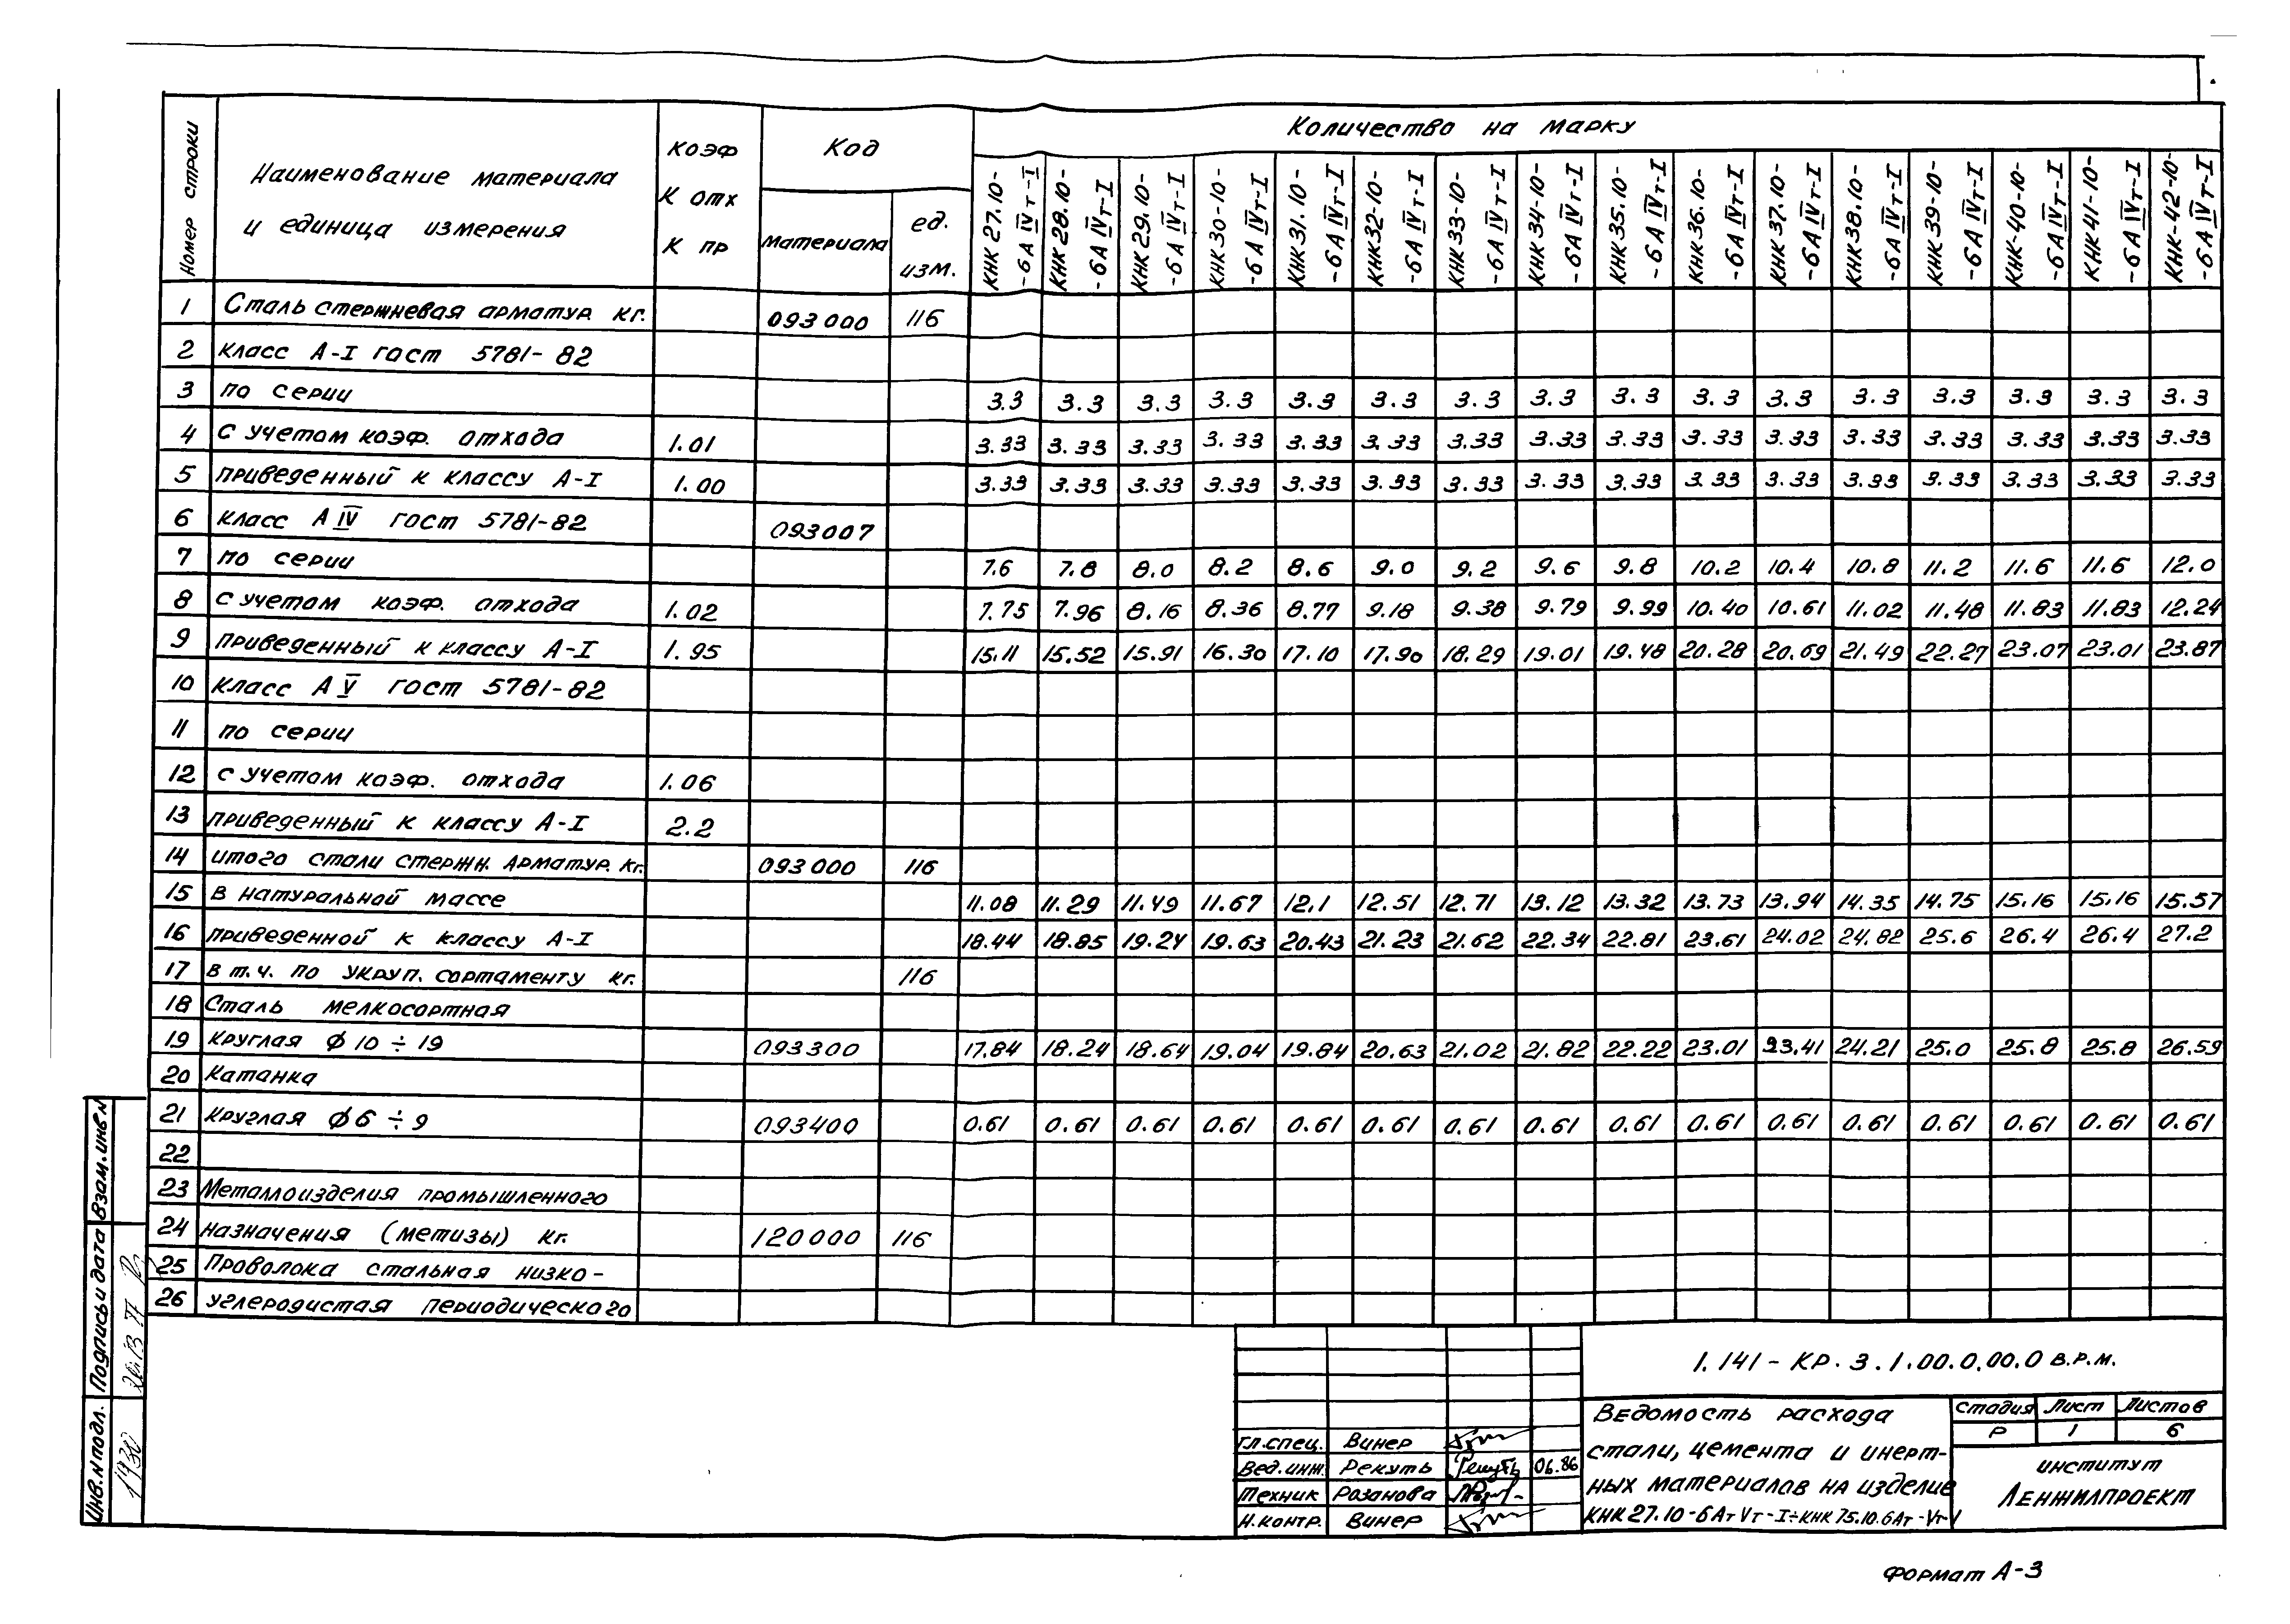 Номер строки
Наименование материала
и единица измерения
коэф
К отх
К пр
Код
материала
ед.
изм.
Количество на марку
КНК 27.10-
-6А IVт-I
КНК 28.10-
-6А IVт-I
КНК 29.10-
-6А IVт-I
КНК 30-10-
-6А IVт-I
КНК 31.10-
-6А IVт-I
КНК 32-10-
-6А IVт-I
КНК 33-10-
-6А IVт-I
КНК 34-10-
-6А IVт-I
КНК 35.10-
-6А IVт-I
КНК 36.10-
-6А IVт-I
КНК 37.10-
-6А IVт-I
КНК 38.10-
-6А IVт-I
КНК 39-10-
-6А IVт-I
КНК-40-10-
-6А IVт-I
КНК 41-10-
-6А IVт-I
КНК-42-10-
-6А IVт-I
1 Сталь стержневая арматур. кг. 093000 116
2 класс А-I гост 5781-82
3 по серии 3.3 3.3 3.3 3.3 3.3 3.3 3.3 3.3 3.3 3.3 3.3 3.3 3.3 3.3 3.3 3.3
4 с учетом коэф. отхода 1.01 3.33 3.33 3.33 3.33 3.33 3.33 3.33 3.33 3.33 3.33 3.33 3.33 3.33 3.33 3.33 3.33
5 приведенный к классу А-I 1.00 3.33 3.33 3.33 3.33 3.33 3.33 3.33 3.33 3.33 3.33 3.33 3.33 3.33 3.33 3.33 3.33
6 класс А IV гост 5781-82 093007
7 по серии 7.6 7.8 8.0 8.2 8.6 9.0 9.2 9.6 9.8 10.2 10.4 10.8 11.2 11.6 11.6 12.0
8 с учетом коэф. отхода 1.02 7.75 7.96 8.16 8.36 8.77 9.18 9.38 9.79 9.99 10.40 10.61 11.02 11.48 11.83 11.83 12.24
9 приведенный к классу А-I 1.95 15.11 15.52 15.91 16.30 17.10 17.90 18.29 19.01 19.48 20.28 20.69 21.49 22.27 23.07 23.01 23.87
10 класс А V гост 5781-82
11 по серии
12 с учетом коэф. отхода 1.06
13 приведенный к классу А-I 2.2
14 итого стали стержн. арматур. кг. 093000 116
15 в натуральной массе 11.08 11.29 11.49 11.67 12.1 12.51 12.71 13.12 13.32 13.73 13.94 14.35 14.75 15.16 15.16 15.57
16 приведенной к классу А-I 18.44 18.85 19.24 19.63 20.43 21.23 21.62 22.34 22.81 23.61 24.02 24.82 25.6 26.4 26.4 27.2
17 в т.ч. по укруп. сортаменту кг. 116
18 Сталь мелкосортная
19 круглая ф 10 ÷ 19 093300 17.84 18.24 18.64 19.04 19.84 20.63 21.02 21.82 22.22 23.01 23.41 24.21 25.0 25.8 25.8 26.59
20 Катанка
21 круглая ф 6 ÷ 9 093400 0.61 0.61 0.61 0.61 0.61 0.61 0.61 0.61 0.61 0.61 0.61 0.61 0.61 0.61 0.61 0.61
22
23 Металлоизделия промышленного
24 назначения (метизы) кг. 120000 116
25 Проволока стальная низко-
26 углеродистая периодического
Взам.инв.N
Подпись и дата
Инв.N подл.
1930
1.141-КР.3.1.00.0.00.0 в.р.м.
Ведомость расхода
стали, цемента и инерт-
ных материалов на изделие
КНК 27.10-6Ат Vт-I÷КНК 75.10.6Ат-Vт-I
Стадия Лист Листов
Р 1 6
институт
Ленжилпроект
гл.спец. Винер
Вед.инж. Рекуть 06.86
техник Розанова
Н.контр. Винер
Формат А-3